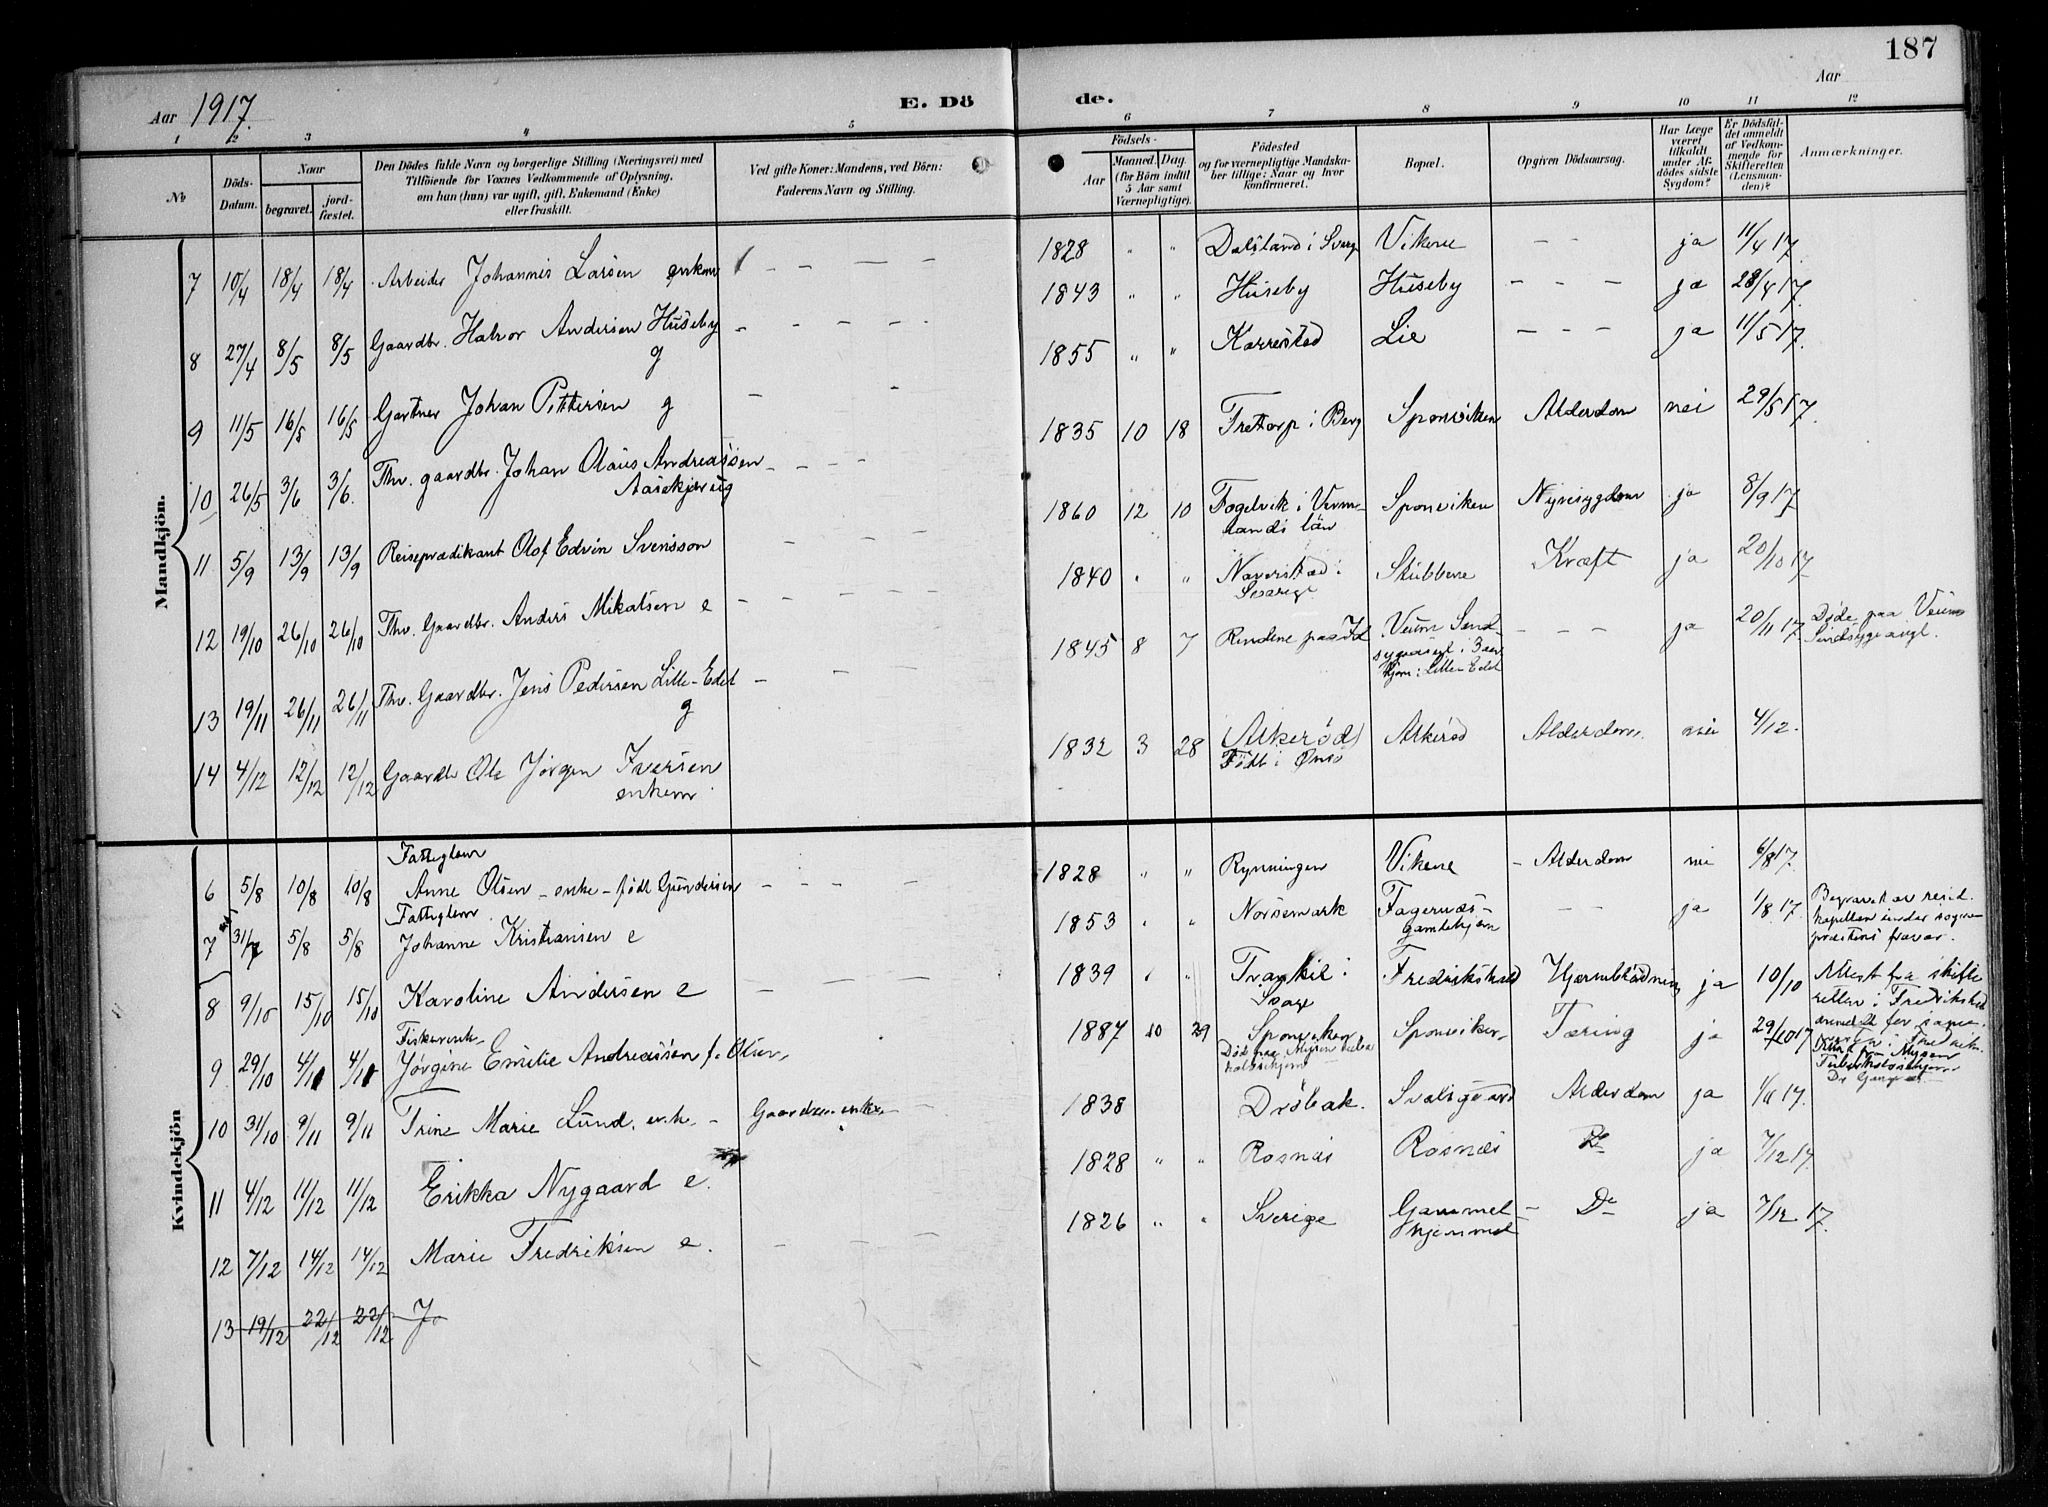 187
Aar 1917.
E. Dö
de.
Aar
1 2 3 4 5 6 7 8 9 10 11 12
№
Döds-Datum.
Naar
begravet.
jord-fæstet.
Den Dödes fulde Navn og borgerlige Stilling (Næringsvei) med
Tilföiende for Voxnes Vedkommende af Oplysning,
om han (hun) var ugift, gift, Enkemand (Enke)
eller fraskilt.
Ved gifte Koner: Mandens, ved Börn:
Faderens Navn og Stilling.
Födsels-
Aar
Maaned. Dag.
(for Börn indtil
5 Aar samt
Værnepligtige).
Födested
og for værnepligtige Mandska-
ber tillige: Naar og hvor
konfirmeret.
Bopæl.
Opgiven Dödsaarsag.
Har Læge
været
tilkaldt
under Af-
dödes sidste
Sygdom?
Er Dödsfal-
det anmeldt
af Vedkom-
mende for
Skifteretten
(Lensman-
den)?
Anmærkninger.
Mandkjön.
7 10/4 18/4 18/4 Arbeider Johannis Larsen enkem – – – – 1828 " " Dalsland i Sverg Vikene – – ja 11/4 17.
8 27/4 8/5 8/5 Gaardbr. Halvor Andersen Huseby – – – – 1843 " " Huseby Huseby – – – ja 28/4 17.
g
9 11/5 16/5 16/5 Gartner Johan Pettersen g – – 1855 " " Karrestad Lie – – – ja 11/5 17.
10 26/5 3/6 3/6. Fhv. gaardbr. Johan Olaus Andreassen – – – 1835 10 18 Tretorp i Berg Sponviken Alderdom nei 29/5 17.
11 5/9 13/9 13/9 Reiseprædikant Olof Edvin Svensson – – – 1860 12 10 Fogelvik i Verm- Sponviken Nyresygdom ja 8/9 17.
lands län
12 19/10 26/10 26/10 Fhv. Gaardbr. Anders Mikalsen e – – – – 1840 " " Naverstad i Stubbene Kræft ja 20/10 17
Sverige
13 19/11 26/11 26/11 Fhv. Gaardbr. Jens Pedersen Lille-Edet – – 1845 8 7 Rendene paa Id Veum Sind- – – – ja 20/11 17 Døde paa Veums
g
sygeasyl. Lille Edet
Sindsygeasyl.
14 4/12 12/12 12/12 Gaardbr Ole Jørgen Iversen 1832 3 28 (Askerød) Askerød Alderdom. nei 4/12.
enkem
Født i Onsø
Kvindekjön
Fattiglem
6 5/8 10/8 10/8 Anne Olsen – enke – født Gundersen – – – – 1828 " " Rynningen Vikene – Alderdom nei 6/8 17.
Fattiglem
7 31/7 5/8 5/8 Johanne Kristiansen e 1853 " " Norsemark Fagernæs- – – ja 1/8 17. Begravet av resid.
gamlehjem
kapellan under sogne-
præstens fravær.
8 9/10 15/10 15/10 Karoline Andersen e – – – – 1839 " " Trankil i Fredrikshald Hjerneblødning ja 10/10 Attest fra skifte
Sverge
retten i Fredrikshald
9 29/10 4/11 4/11 Jørgine Emilie Andreassen f. Olsen 1887 10 29 Sponviken Sponviken Tæring ja 29/10 17
10 31/10 9/11 9/11 Trine Marie Lund. enke. – Gaardbr. enke – – 1838 Drøbak. Svalsgaard Alderdom ja 1/11 17.
11 4/12 11/12 11/12 Erikka Nygaard e. 1828 " " Rosnæs Rosnæs Do ja 7/12 17.
12 7/12 14/12 14/12 Marie Fredriksen e. – – – – 1826 " " Sverige Gammel- Do ja 7/12 17.
hjemmet
13 19/12 22/12 22/12 Jo